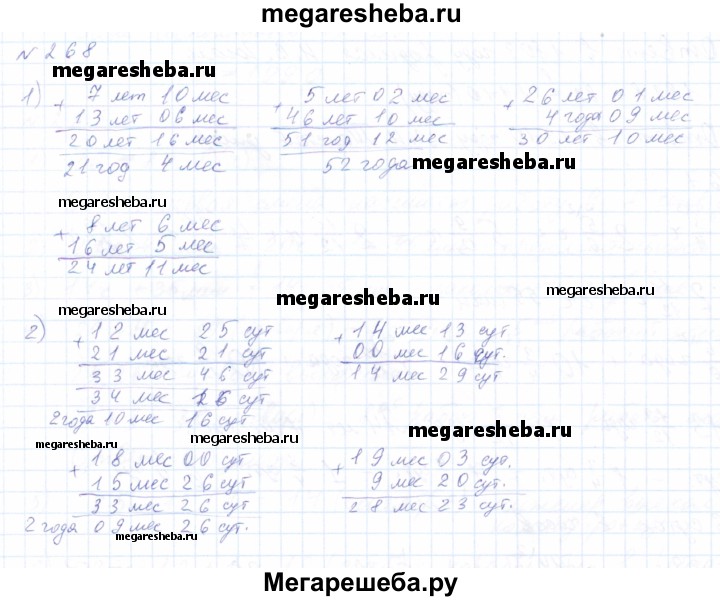 megaresheba.ru
№ 268
megaresheba.ru
1) + 7 лет 10 мес
13 лет 06 мес
20 лет 16 мес
21 год 4 мес
+ 5 лет 02 мес
46 лет 10 мес
51 год 12 мес
52 года
+ 26 лет 01 мес
4 года 09 мес
30 лет 10 мес
megaresheba.ru
megaresheba.ru
+ 8 лет 6 мес
16 лет 5 мес
24 лет 11 мес
megaresheba.ru
megaresheba.ru
megaresheba.ru
2) + 12 мес 25 сут
21 мес 21 сут
33 мес 46 сут
34 мес 16 сут
2 года 10 мес 16 сут
+ 14 мес 13 сут
00 мес 16 сут.
14 мес 29 сут
megaresheba.ru
megaresheba.ru
megaresheba.ru
+ 18 мес 00 сут
15 мес 26 сут
33 мес 26 сут
2 года 09 мес 26 сут.
+ 19 мес 03 сут.
9 мес 20 сут.
28 мес 23 сут.
megaresheba.ru
Мегарешеба.ру